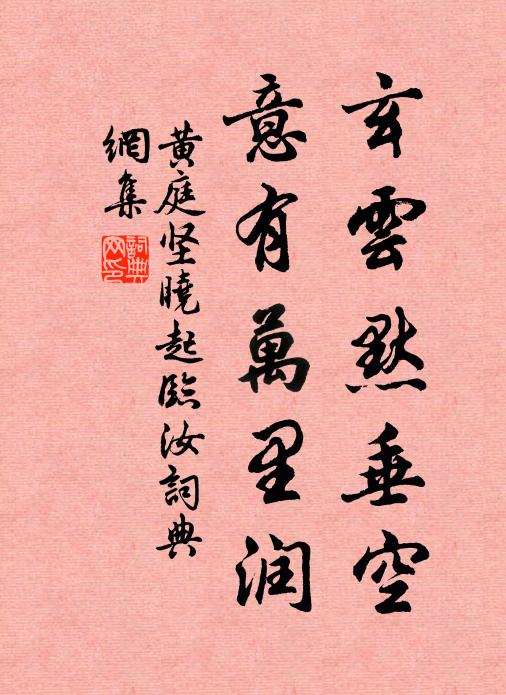 玄雲默垂空
意有萬里润
黄庭坚曉起臨汝詞典
網集
詞典
网印